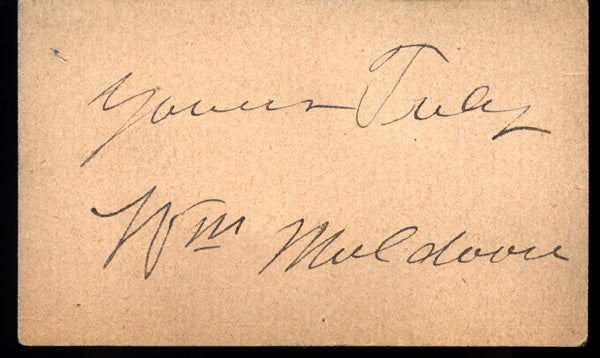 Yours Truly
Wm Muldoon